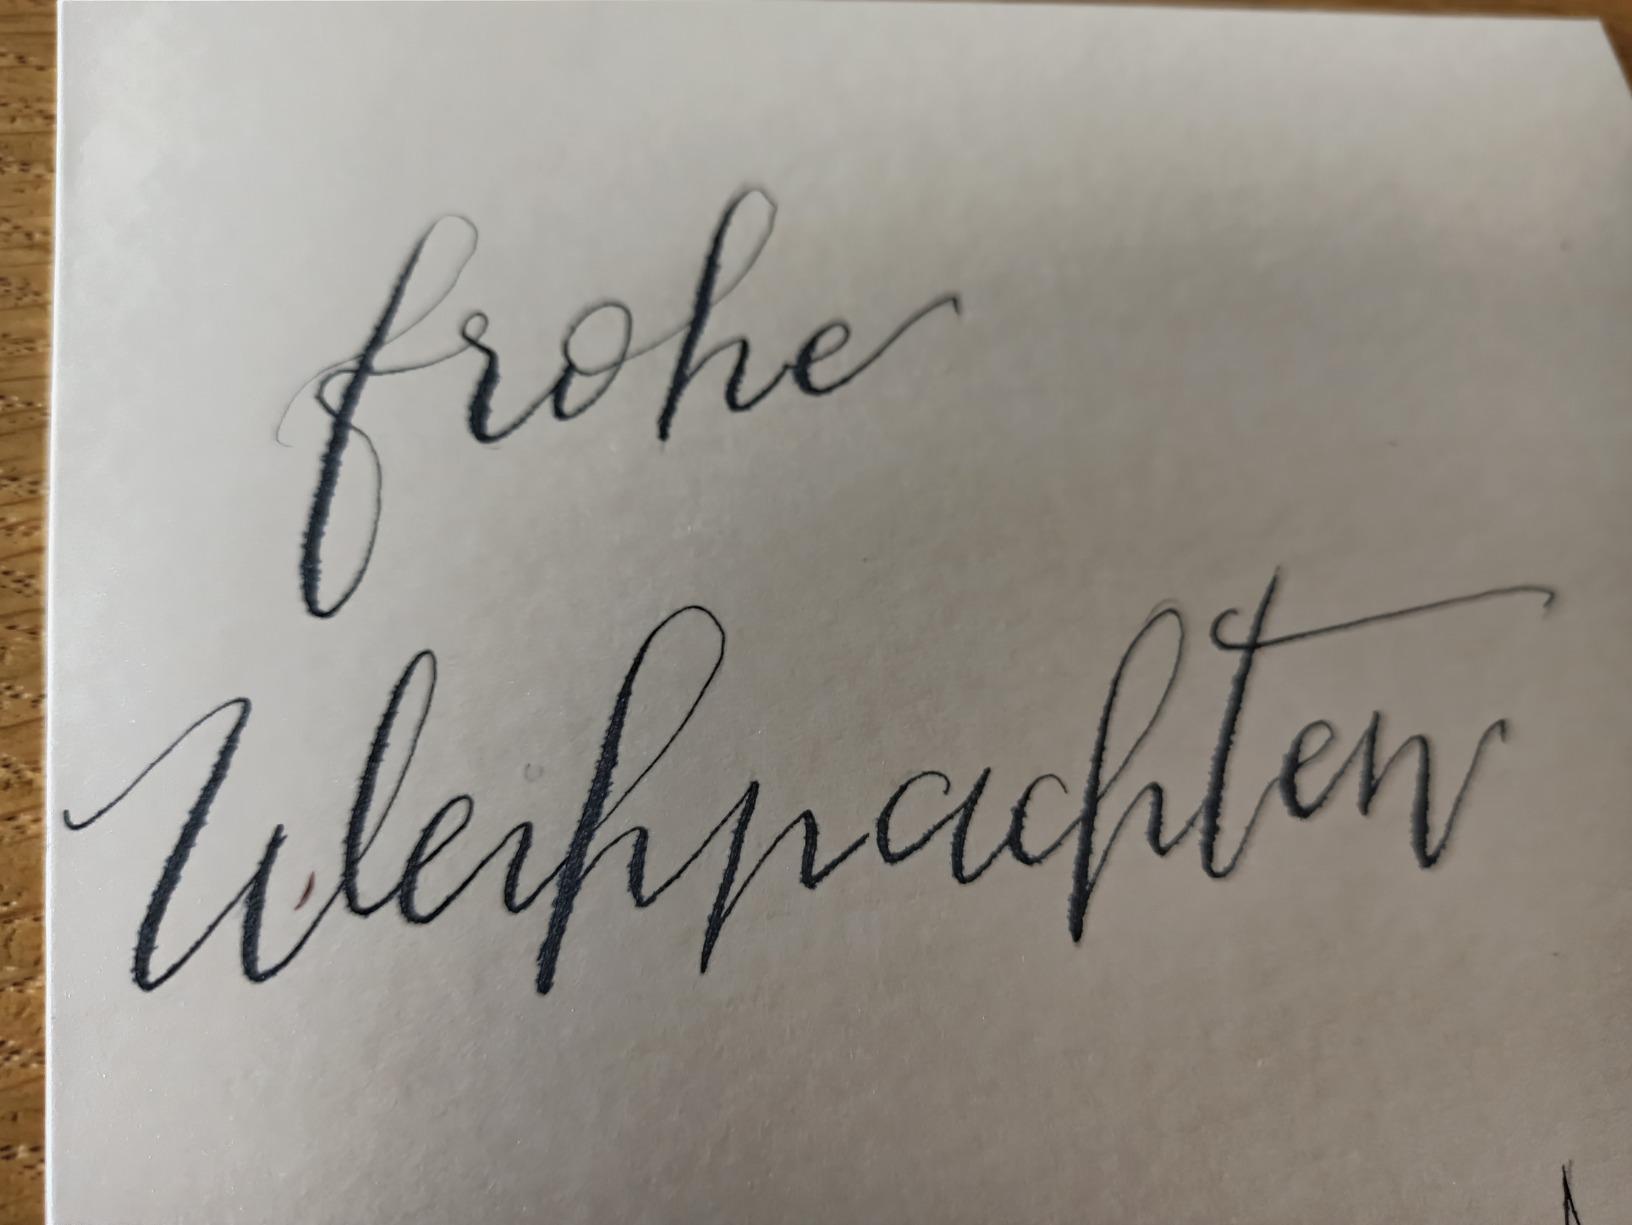 frohe
Weihnachten